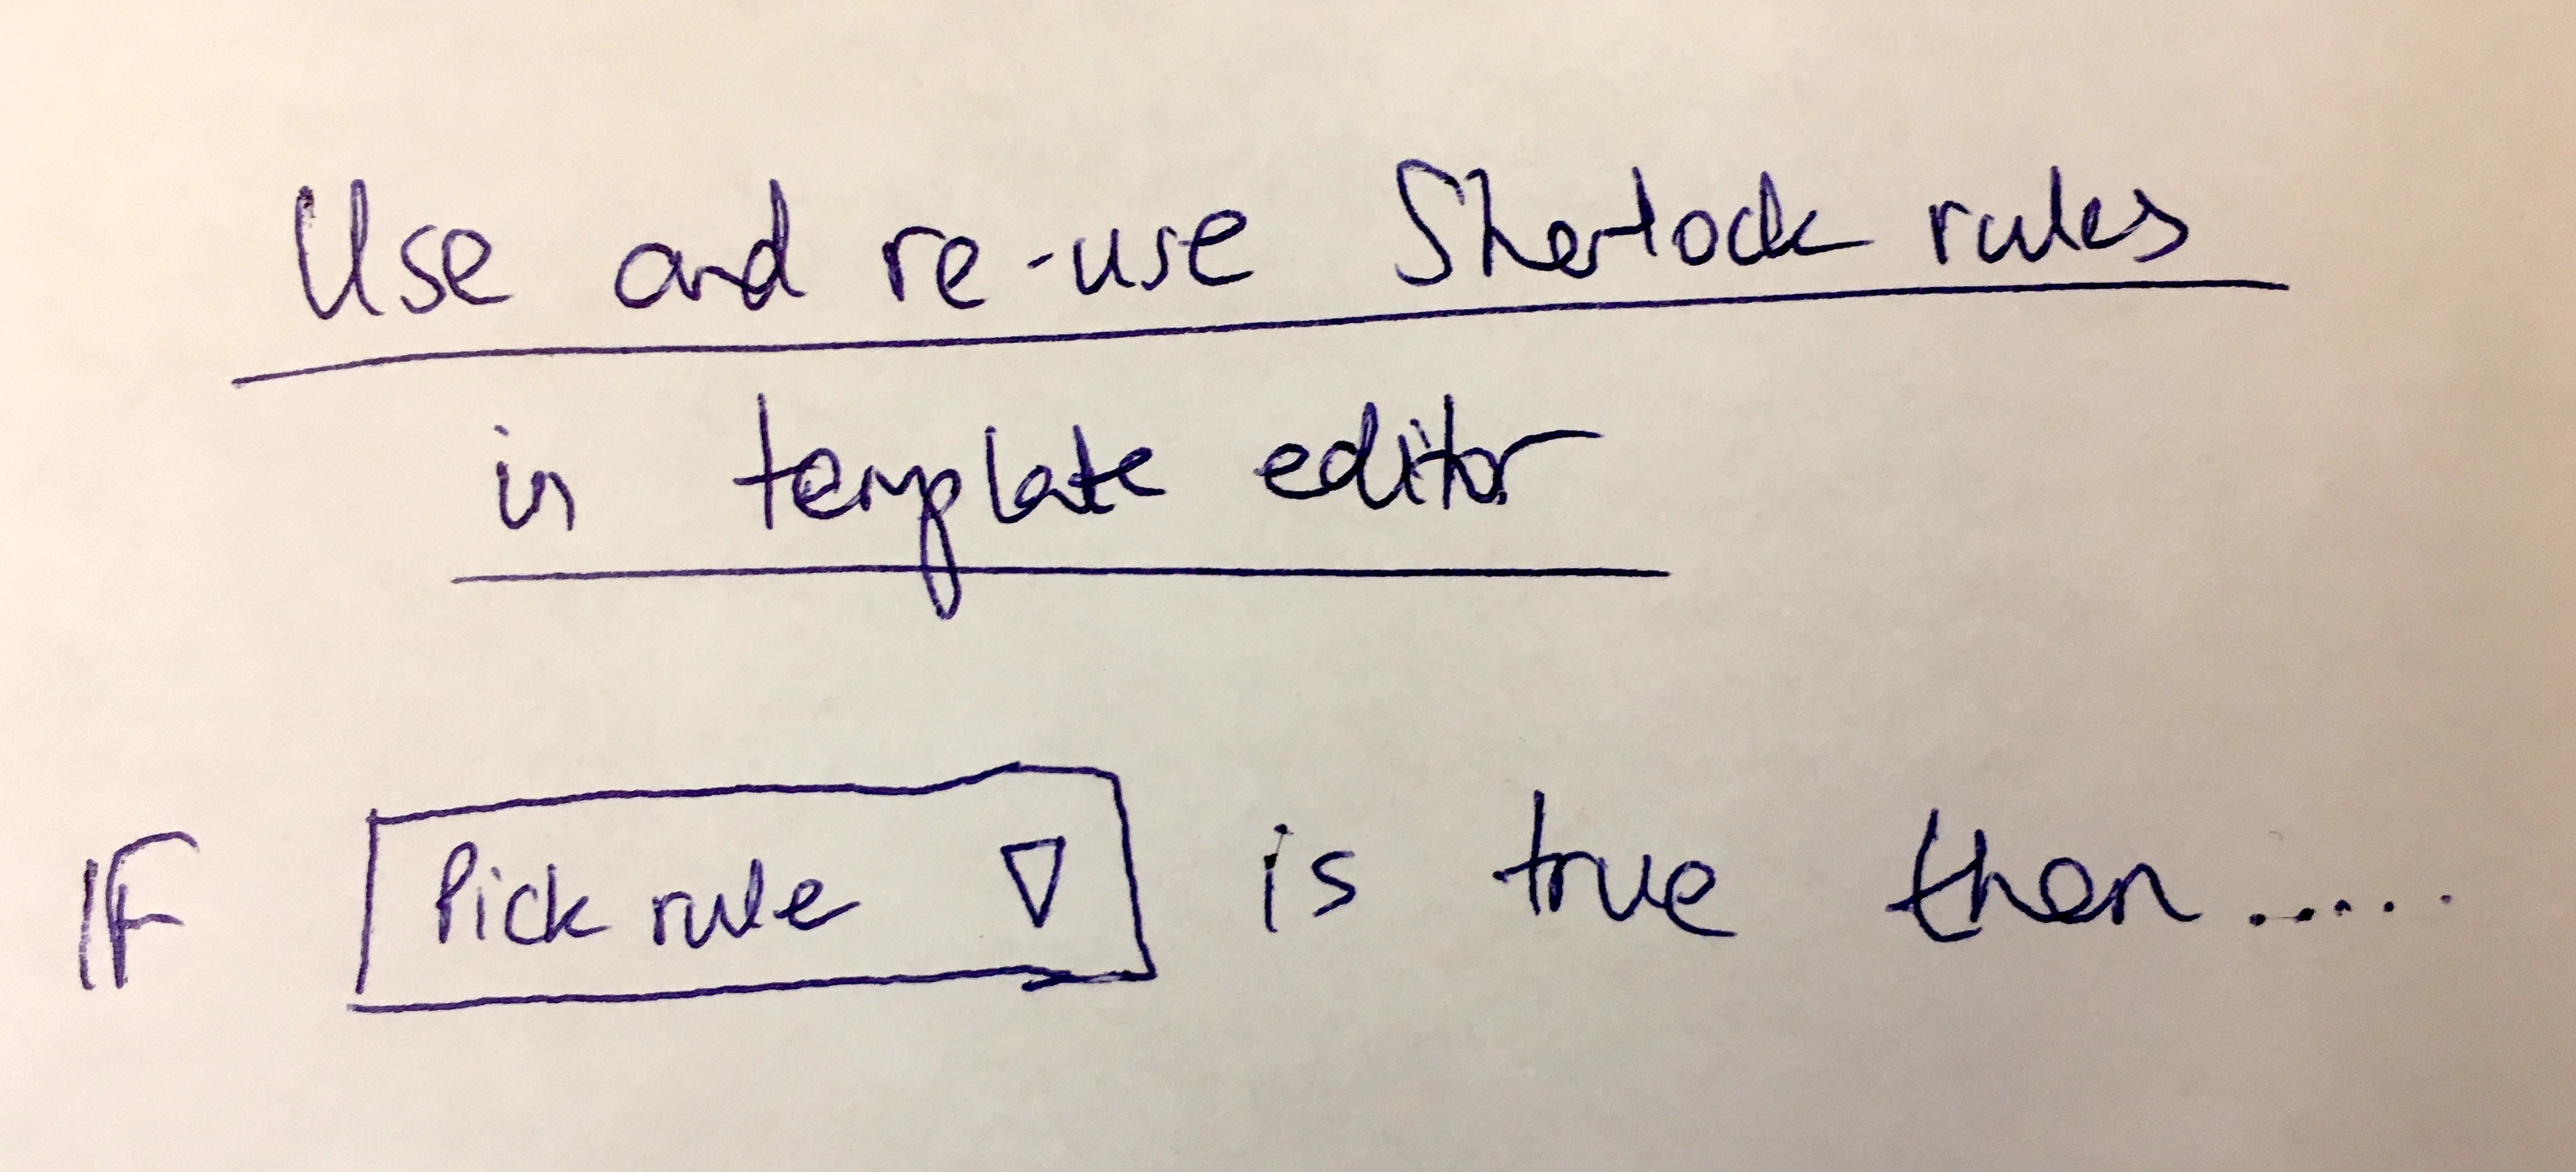 Use and re-use Sherlock rules
in template editor
IF Pick rule ▽ is true then.....